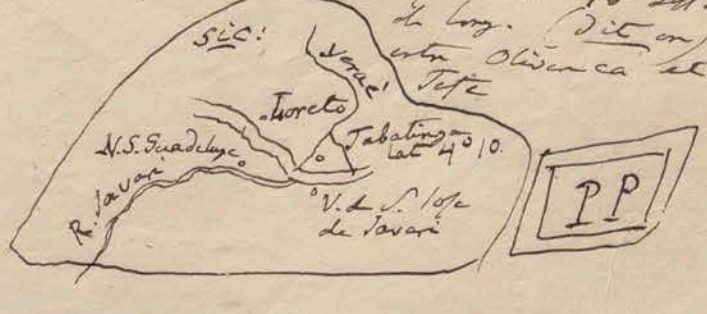 de long. (dit on)
entre Olivenca et
Teffe
sic!
Yerac!
Loreto
Tabatinga
lat 4° 10.
N.S. Guadelupe
R. Javari
V. de S. Iose
de Javari
PP